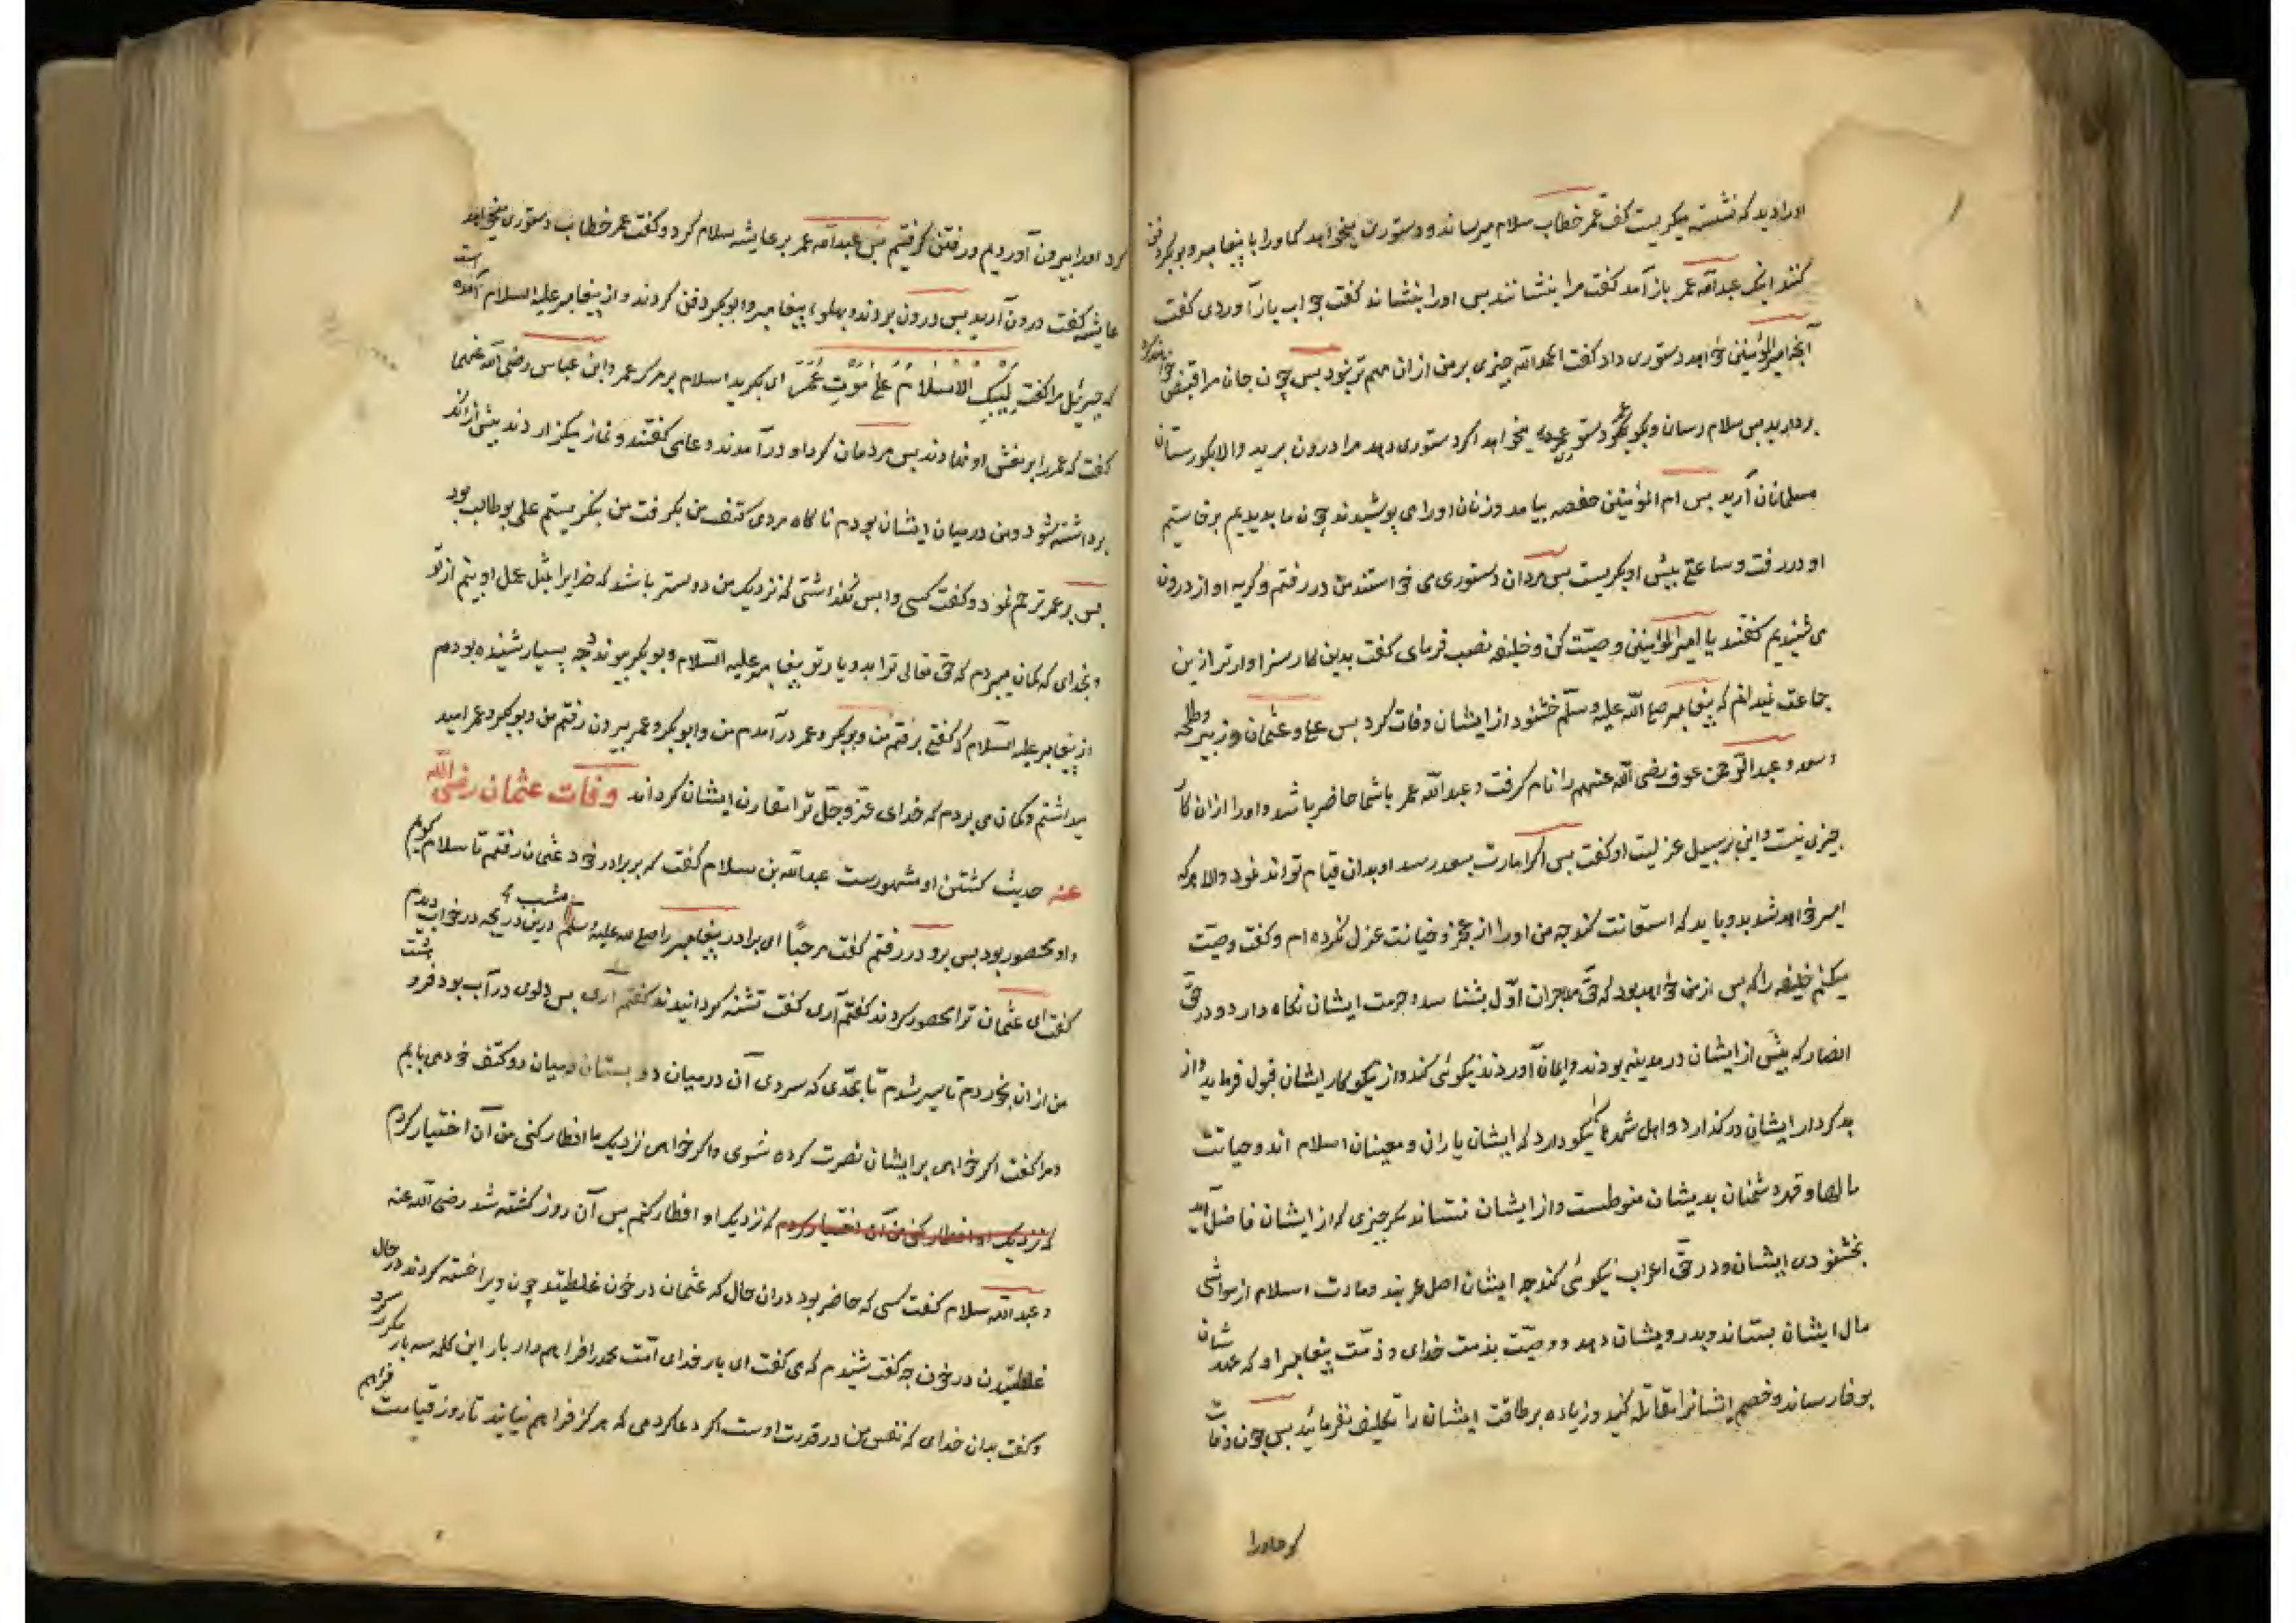 اورا دید که نشسته میکریست کفت عمر خطاب سلام میرساند و دستوری میخواهد که اورا با پیغامبر و بوبکر دفن
کنند اینک عبدالله عمر باز آمد کفت مرا بنشانند پس اورا بنشاند کفت جواب باز آوردی کفت
آنچه امیرالمؤمنین خواهد دستوری داد کفت الحمدالله چیزی بر من ازان مهم تر نبود پس چون جان مرا قبض
بردارید پس سلام رسان و بکو عمر دستوری میخواهد اکر دستوری دهد مرا درون برید والا بکورستان
مسلمانان آرید پس ام المؤمنین حفصه بیامد و زنان اورا می پوشیدند چون ما بدیدیم برخاستیم
او در رفت و ساعتی پیش او بکریست پس مردان دستوری می خواستند من در رفتم و کریه او از درون
می شنیدیم کفتند یا امیرالمؤمنین وصیت کن و خلیفه نصب فرمای کفت بدین کار سزاوارتر ازین
جماعت نمیدانم که پیغامبر صلی الله علیه وسلم خشنود از ایشان وفات کرد پس علی و عثمان و زبیر و طلحه
و سعد و عبدالرحمن عوف رضی الله عنهم را نام کرفت و عبدالله عمر باشما حاضر باشد و اورا ازان کار
چیزی نیست و این بر سبیل عزلیت او کفت پس اکر امارت بسعد رسد او بدان قیام تواند نمود والا هرکه
امیر خواهد شد بدو باید که استعانت کند چه من اورا از عجز و خیانت عزل نکرده ام و کفت وصیت
میکنم خلیفه را که پس از من خواهد بود که حق مهاجران اول بشناسد و حرمت ایشان نکاه دارد و در حق
انصار که پیش از ایشان در مدینه بودند و ایمان آوردند نیکوئی کند و از نیکوکار ایشان قبول فرماید و از
بدکردار ایشان درکذارد و اهل شهرها نیکو دارد که ایشان یاران و معینان اسلام اند و جبایت
مالها و قهر دشمنان بدیشان منوطست و از ایشان نستاند مکر چیزی که از ایشان فاضل آید
بخشنودی ایشان و در حق اعراب نیکوئی کند چه ایشان اصل عربند و مادت اسلام از مواشی
مال ایشان بستاند و بدرویشان دهد و وصیت بذمت خدای و ذمت پیغامبر او که عهد شان
بوفا رساند و خصم ایشانرا مقاتله کنید و زیاده بر طاقت ایشان را تکلیف نفرمائید پس چون وفات
کرد اورا
کرد اورا بیرون آوردیم و رفتن کرفتیم پس عبدالله عمر بر عایشه سلام کرد و کفت عمر خطاب دستوری میخواهد
عایشه کفت درون آرید پس درون بردند و بهلوء پیغامبر و ابوبکر دفن کردند و از پیغامبر علیه السلام آمده است
که جبرئیل مرا کفت لیبک الاسلام علی موت عمر ای بکرید اسلام بر مرک عمر و ابن عباس رضی الله عنهما
کفت که عمر را بر نعش او نهادند پس مردمان کرد او درآمدند و دعا می کفتند و نماز میکزاردند پیش ازانکه
برداشته شود و من درمیان ایشان بودم ناکاه مردی کتف من بکرفت من بنکریستم علی بوطالب بود
پس بر عمر ترحم نمود و کفت کسی وا پس نکذاشتی که نزدیک من دوستر باشد که خدایرا بمثل عمل او بینم از تو
و بخدای که کمان میبردم که حق تعالی ترا بدو یار تو پیغامبر علیه السلام و بوبکر پیوندد چه بسیار شنیده بودم
از پیغامبر علیه السلام که کفتی برفتم من و بوبکر و عمر درآمدم من و ابوبکر و عمر بیرون رفتم من و بوبکر و عمر امید
میداشتم و کمان می بردم که خدای عز و جل ترا مقارن ایشان کرداند وفات عثمان رضی الله
عنه حدیث کشتن او مشهورست عبدالله بن سلام کفت که بر برادر خود عثمان رفتم تا سلام کویم
و او محصور بود پس برو در رفتم کفت مرحبًا ای برادر پیغامبر را صلی الله علیه وسلم مشب درین دریچه در خواب دیدم
کفت ای عثمان ترا محصور کردند کفتم آری کفت تشنه کردانیدند کفتم آری پس دلوی در آب بود فرو
من ازان بخوردم تا سیر شدم تا بحدی که سردی آن درمیان دو بستان و میان دو کتف خود می یابم
و مرا کفت اکر خواهی بر ایشان نصرت کرده شوی و اکر خواهی نزدیک ما افطار کنی من آن اختیار کردم
که نزدیک او افطار کنی من آن اختیار کردم که نزدیک او افطار کنم پس آن روز کشته شد رضی الله عنه
و عبدالله سلام کفت کسی که حاضر بود دران حال که عثمان در خون غلطیید چون ویرا خسته کردند در حال
غلطیدن در خون چه کفت شنیدم که می کفت ای بار خدای امت محمد را فراهم دار بار این کلمه سه بار مکرر کرد
و کفت بدان خدای که نفس من در قدرت اوست اکر دعا کردمی که هرکز فراهم نیایند تا روز قیامت فراهم